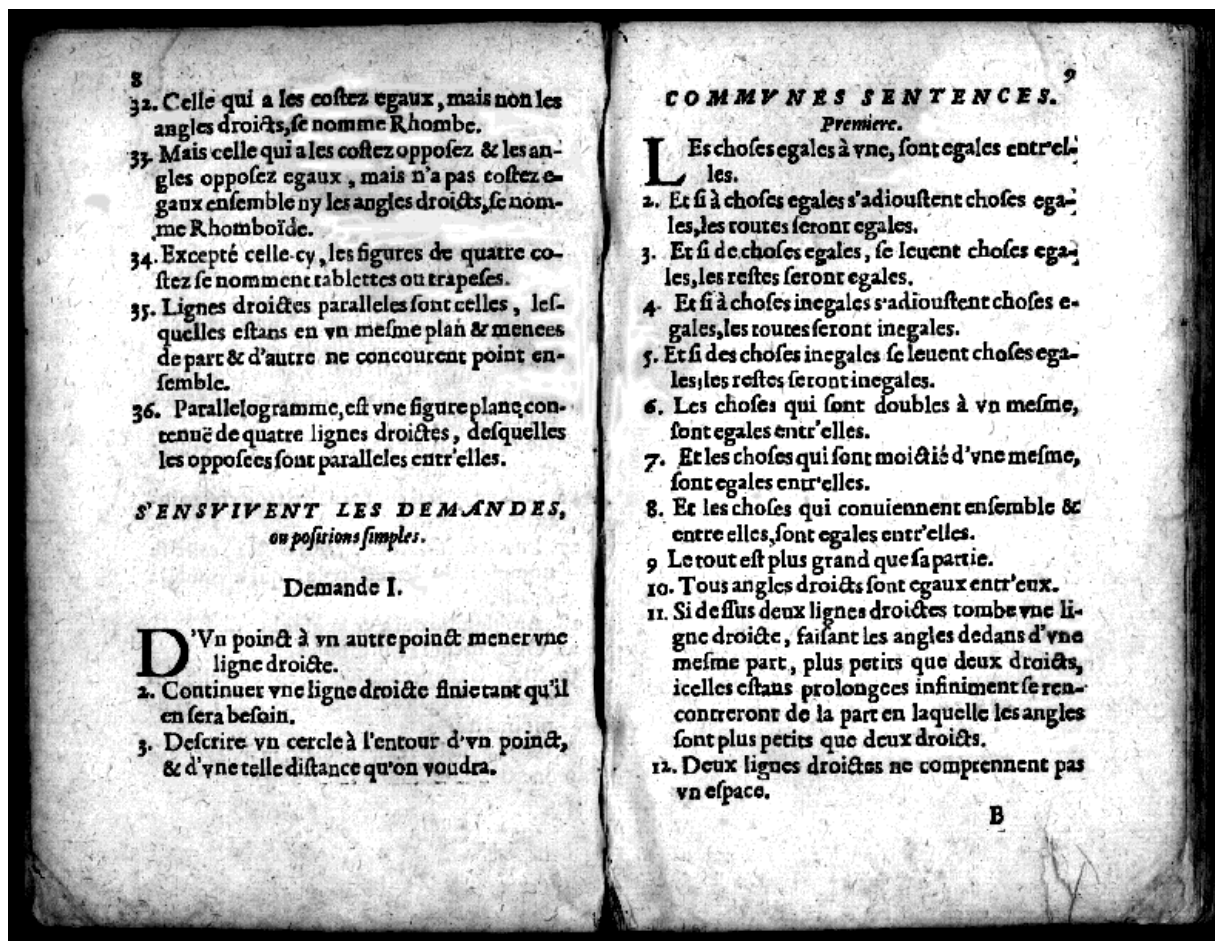 8
32. Celle qui a les coſtez egaux, mais non les
angles droicts, ſe nomme Rhombe.
33. Mais celle qui a les coſtez oppoſez & les an-
gles oppoſez egaux, mais n'a pas coſtez e-
gaux enſemble ny les angles droicts, ſe nom-
me Rhomboïde.
34. Excepté celle-cy, les figures de quatre co-
ſtez ſe nomment tablettes ou trapeſes.
35. Lignes droictes paralleles ſont celles, leſ-
quelles eſtans en vn meſme plan & menees
de part & d'autre ne concourent point en-
ſemble.
36. Parallelogramme, eſt vne figure plane, con-
tenuë de quatre lignes droictes, deſquelles
les oppoſees ſont paralleles entr'elles.
S'ENSVIVENT LES DEMANDES,
ou poſitions ſimples.
Demande I.
D'Vn poinct à vn autre poinct mener vne
ligne droicte.
2. Continuer vne ligne droicte finie tant qu'il
en ſera beſoin.
3. Deſcrire vn cercle à l'entour d'vn poinct,
& d'vne telle diſtance qu'on voudra.
9
COMMVNES SENTENCES.
Premiere.
LEs choſes egales à vne, ſont egales entr'el-
les.
2. Et ſi à choſes egales s'adiouſtent choſes ega-
les, les toutes ſeront egales.
3. Et ſi de choſes egales, ſe leuent choſes ega-
les, les reſtes ſeront egales.
4. Et ſi à choſes inegales s'adiouſtent choſes e-
gales, les toutes ſeront inegales.
5. Et ſi des choſes inegales ſe leuent choſes ega-
les, les reſtes ſeront inegales.
6. Les choſes qui ſont doubles à vn meſme,
ſont egales entr'elles.
7. Et les choſes qui ſont moictié d'vne meſme,
ſont egales entr'elles.
8. Et les choſes qui conuiennent enſemble &
entre elles, ſont egales entr'elles.
9 Le tout eſt plus grand que ſa partie.
10. Tous angles droicts ſont egaux entr'eux.
11. Si deſſus deux lignes droictes tombe vne li-
gne droicte, faiſant les angles dedans d'vne
meſme part, plus petits que deux droicts,
icelles eſtans prolongees infiniment ſe ren-
contreront de la part en laquelle les angles
ſont plus petits que deux droicts.
12. Deux lignes droictes ne comprennent pas
vn eſpace.
B